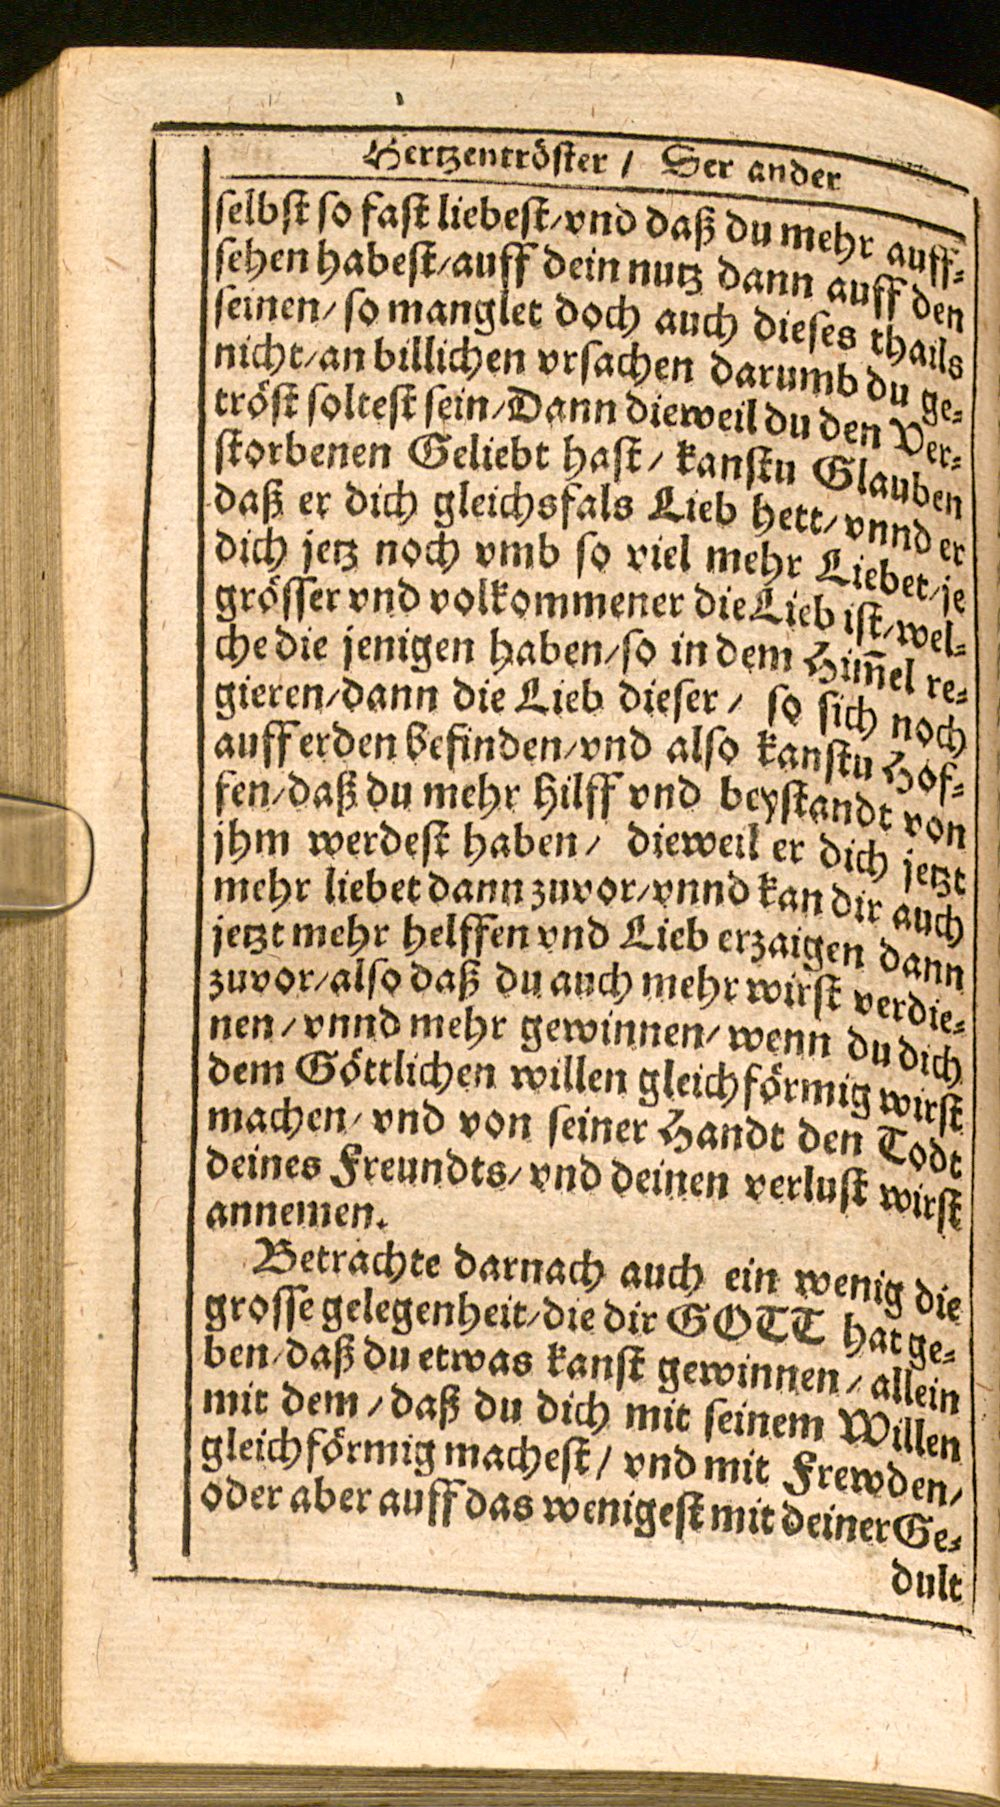 Hertzentröster / Der ander
selbst so fast liebest/vnd daß du mehr auff-
sehen habest/auff dein nutz dann auff den
seinen/ so manglet doch auch dieses thails
nicht/an billichen vrsachen darumb du ge-
tröst soltest sein/Dann dieweil du den Ver-
storbenen Geliebt hast/ kanstu Glauben
daß er dich gleichsfals Lieb hett/vnnd er
dich jetz noch vmb so viel mehr Liebet/je
grösser vnd volkommener die Lieb ist/wel-
che die jenigen haben/so in dem Him̄el re-
gieren/dann die Lieb dieser / so sich noch
auff erden befinden/vnd also kanstu Hof-
fen/daß du mehr Hilff vnd beystandt von
jhm werdest haben/ dieweil er dich jetzt
mehr liebet dann zuvor/vnnd kan dir auch
jetzt mehr helffen vnd Lieb erzaigen dann
zuvor/also daß du auch mehr wirst verdie-
nen/vnnd mehr gewinnen/wenn du dich
dem Göttlichen willen gleichförmig wirst
machen/vnd von seiner Handt den Todt
deines Freundts/vnd deinen verlust wirst
annemen.
Betrachte darnach auch ein wenig die
grosse gelegenheit/die dir GOTT hat ge-
ben/daß du etwas kanst gewinnen/allein
mit dem/daß du dich mit seinem Willen
gleichförmig machest/ vnd mit Frewden/
oder aber auff das wenigest mit deiner Ge-
dult